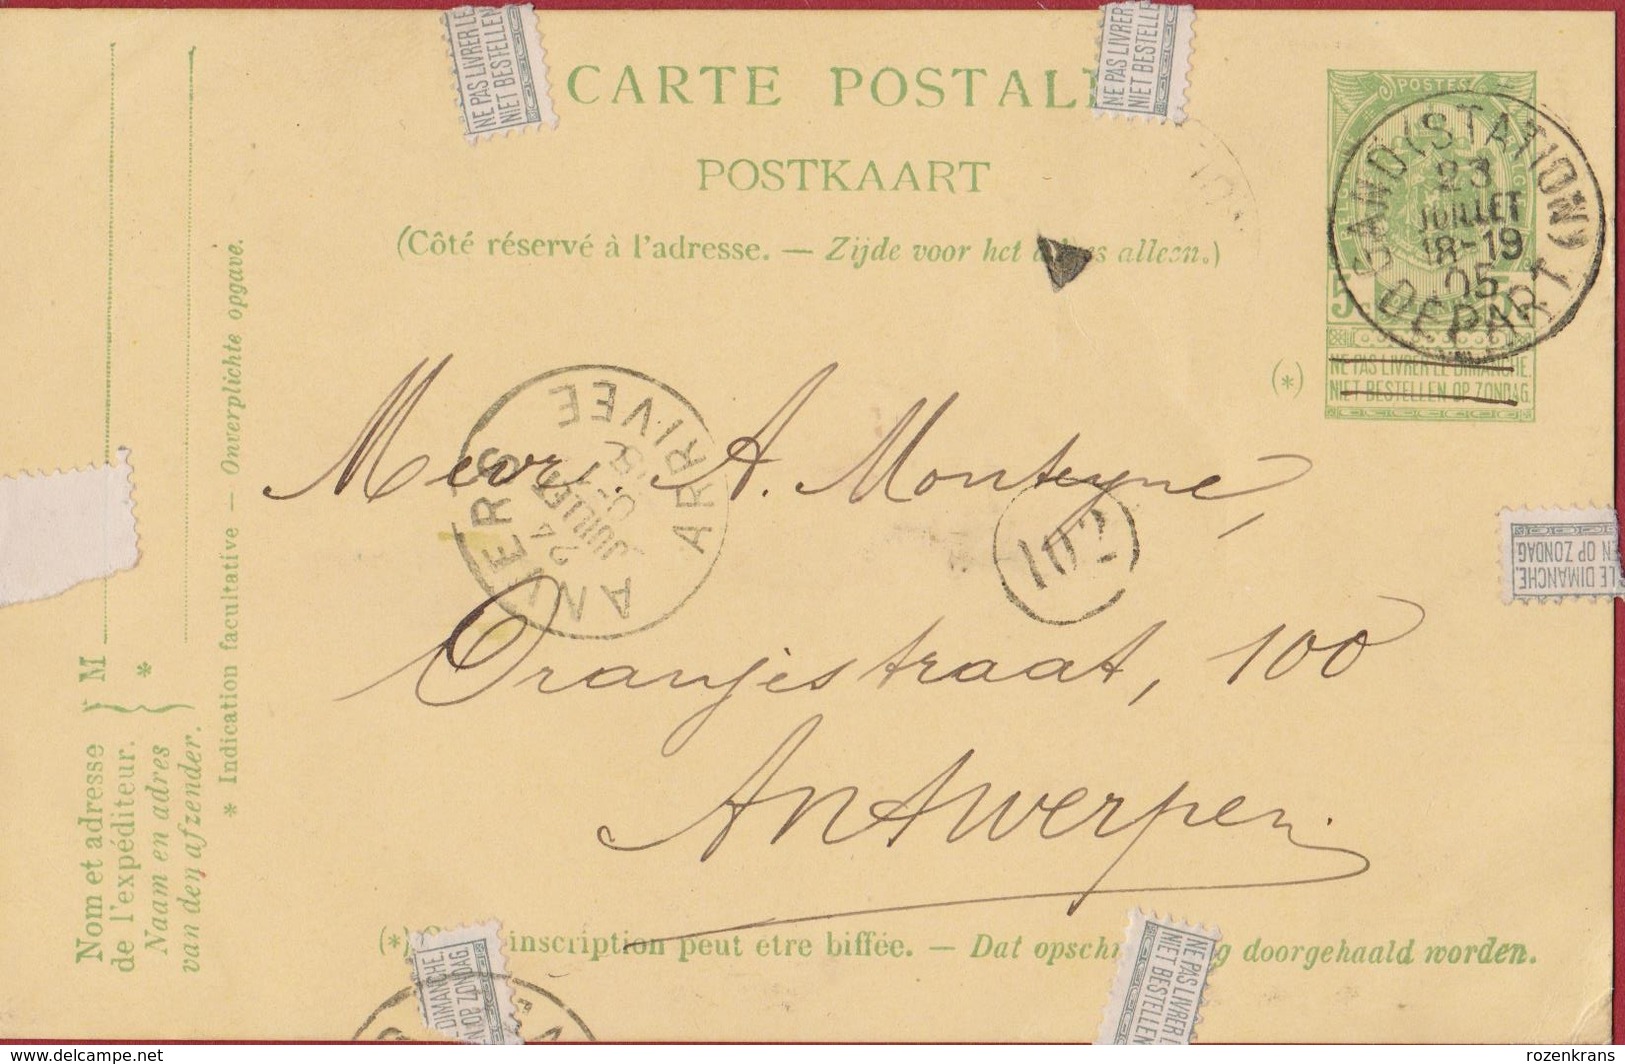 CARTE POSTALE
POSTKAART
(Côté réservé à l'adresse. — Zijde voor het alleen.)
NE PAS LIVRER LE
NIET BESTELLEN
NE PAS LIVRER LE
NIET BESTELLEN
POSTES
5
GAND (STATION)
23
JUILLET
18-19
05
DEPART
(*)
NE PAS LIVRER LE DIMANCHE.
NIET BESTELLEN OP ZONDAG.
ANVERS
24
JUILLET
ARRIVEE
Mevr. A. Monteyne,
102
Oranjestraat, 100
Antwerpen.
LE DIMANCHE.
EN OP ZONDAG
M
*
Nom et adresse
de l'expéditeur.
Naam en adres
van den afzender.
* Indication facultative — Onverplichte opgave.
(*) inscription peut être biffée. — Dat opschr g doorgehaald worden.
DIMANCHE.
EN OP ZONDAG
NE PAS LIVRER L
NIET BESTELLEN
rozenkrans